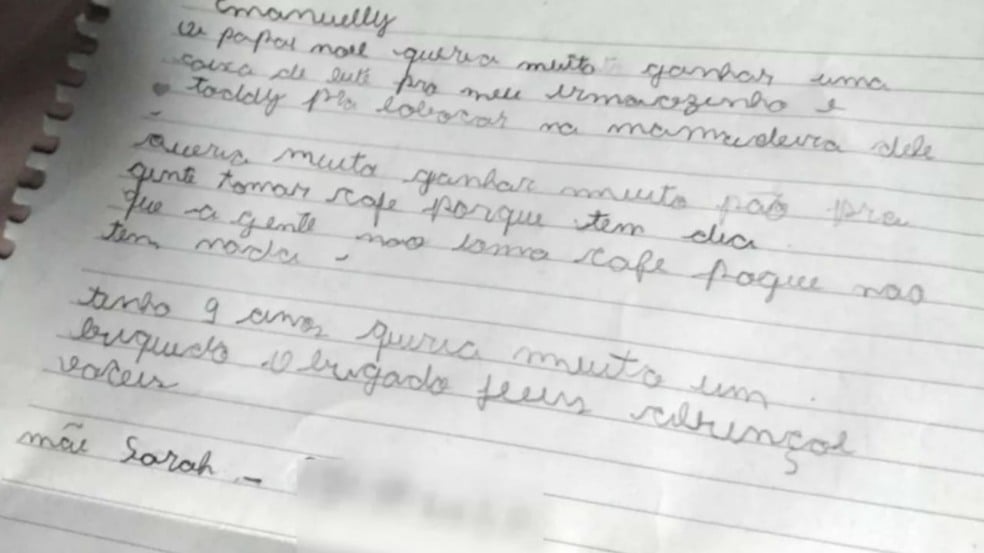 Emanuelly
oi papai noel queria muito ganhar uma
caixa de leite pro meu irmaozinho e
toddy pra colocar na mamadeira dele
queria muito ganhar muito pão pra
gente tomar cafe porque tem dia
que a gente nao toma cafe poque nao
tem nada.
tenho 9 anos queria muito um
briquedo obrigado jeus abençoe
voceis
mãe Sarah -